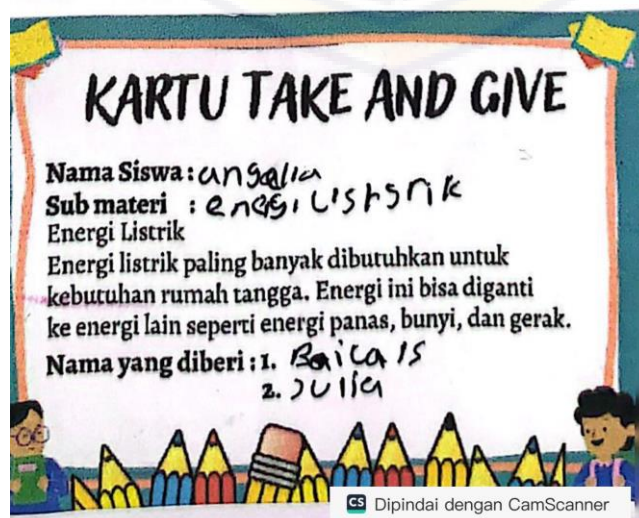 KARTU TAKE AND GIVE
Nama Siswa : angelia
Sub materi : energi Listsrik
Energi Listrik
Energi listrik paling banyak dibutuhkan untuk
kebutuhan rumah tangga. Energi ini bisa diganti
ke energi lain seperti energi panas, bunyi, dan gerak.
Nama yang diberi : 1.
2. Julia
CS Dipindai dengan CamScanner